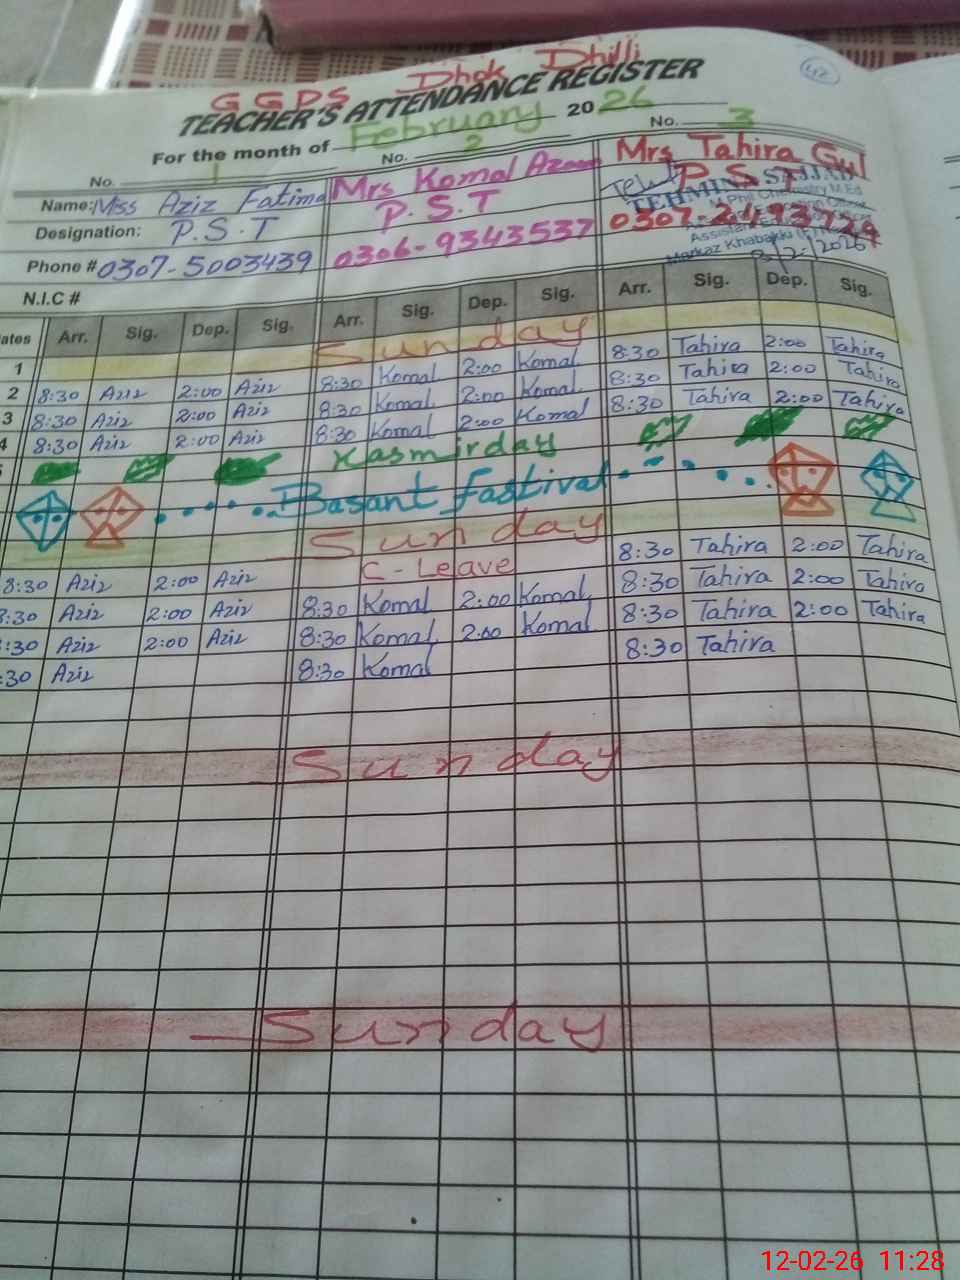 GGPS Dhok Dhilli
TEACHER'S ATTENDANCE REGISTER 42
For the month of February 2026
No. 1 No. 2 No. 3
Name: Miss Aziz Fatima Mrs Komal Azaam Mrs Tahira Gul
Designation: P.S.T P.S.T P.S.T
TEHMINA SAJJAD
Phone # 0307-5003439 0306-9343537 0307-2493729
Assistant
Markaz Khabakki
N.I.C #
ates Arr. Sig. Dep. Sig. Arr. Sig. Dep. Sig. Arr. Sig. Dep. Sig.
1 Sunday
2 8:30 Aziz 2:00 Aziz 8:30 Komal 2:00 Komal 8:30 Tahira 2:00 Tahira
3 8:30 Aziz 2:00 Aziz 8:30 Komal 2:00 Komal 8:30 Tahira 2:00 Tahira
4 8:30 Aziz 2:00 Aziz 8:30 Komal 2:00 Komal 8:30 Tahira 2:00 Tahira
Kasmirday
Basant Fastival
Sunday
8:30 Aziz 2:00 Aziz C-Leave 8:30 Tahira 2:00 Tahira
:30 Aziz 2:00 Aziz 8:30 Komal 2:00 Komal 8:30 Tahira 2:00 Tahira
:30 Aziz 2:00 Aziz 8:30 Komal 2:00 Komal 8:30 Tahira 2:00 Tahira
:30 Aziz 8:30 Komal 8:30 Tahira
Sunday
Sunday
12-02-26 11:28